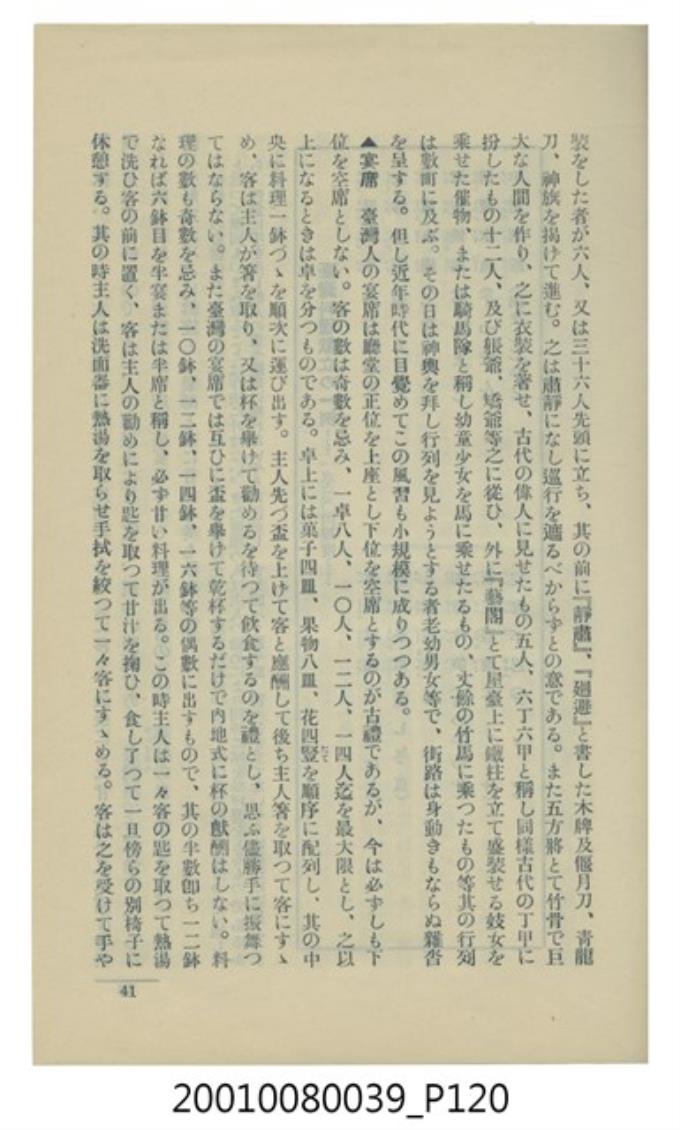 裝をした者が六人、又は三十六人先頭に立ち、其の前に『靜肅』、『廻避』と書した木牌及偃月刀、靑龍
刀、神旗を揭けて進む。之は肅靜になし巡行を遮るべからずとの意である。また五方將とて竹骨で巨
大な人間を作り、之に衣裝を著せ、古代の偉人に見せたもの五人、六丁六甲と稱し同樣古代の丁甲に
扮したもの十二人、及び爺、矯爺等之に從ひ、外に『藝閣』とて屋臺上に鐵柱を立て盛裝せる妓女を
乘せた催物、または騎馬隊と稱し幼童少女を馬に乘せたるもの、丈餘の竹馬に乘つたもの等其の行列
は數町に及ぶ。その日は神輿を拜し行列を見ようとする者老幼男女等で、街路は身動きもならぬ雜沓
を呈する。但し近年時代に目覺めてこの風習も小規模に成りつつある。
▲宴席　臺灣人の宴席は廳堂の正位を上座とし下位を空席とするのが古禮であるが、今は必ずしも下
位を空席としない。客の數は奇數を忌み、一卓八人、一〇人、一二人、一四人迄を最大限とし、之以
上になるときは卓を分つものである。卓上には菓子四皿、果物八皿、花四竪を順序に配列し、其の中
央に料理一鉢づゝを順次に運び出す。主人先づ盃を上けて客と應酬して後ち主人箸を取つて客にすゝ
め、客は主人が箸を取り、又は杯を擧けて勸めるを待つて飮食するのを禮とし、思ふ儘勝手に振舞つ
てはならない。また臺灣の宴席では互ひに盃を擧けて乾杯するだけで內地式に杯の獻酬はしない。料
理の數も奇數を忌み、一〇鉢、一二鉢、一四鉢、一六鉢等の偶數に出すもので、其の半數卽ち一二鉢
なれば六鉢目を半宴または半席と稱し、必ず甘い料理が出る。この時主人は一々客の匙を取つて熱湯
で洗ひ客の前に置く、客は主人の勸めにより匙を取つて甘汁を掬ひ、食し了つて一旦傍らの別椅子に
休憩する。其の時主人は洗面器に熱湯を取らせ手拭を絞つて一々客にすゝめる。客は之を受けて手や
41
20010080039_P120